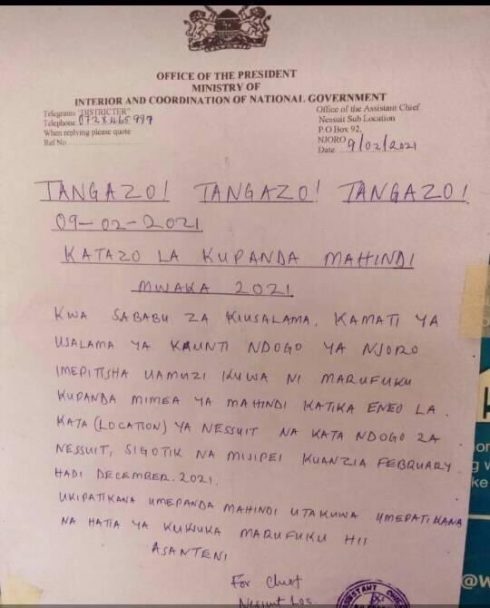 OFFICE OF THE PRESIDENT
MINISTRY OF
INTERIOR AND COORDINATION OF NATIONAL GOVERNMENT
Telegrams "DISTRICTER"
Telephone 0728465997
When replying please quote
Ref No
Office of the Assistant Chief
Nessuit Sub Location
P.O Box 92,
NJORO
Date 9/02/2021
TANGAZO! TANGAZO! TANGAZO!
09-02-2021
KATAZO LA KUPANDA MAHINDI
MWAKA 2021
KWA SABABU ZA KIUSALAMA, KAMATI YA
USALAMA YA KAUNTI NDOGO YA NJORO
IMEPITISHA UAMUZI KUWA NI MARUFUKU
KUPANDA MIMEA YA MAHINDI KATIKA ENEO LA
KATA (LOCATION) YA NESSUIT NA KATA NDOGO ZA
NESSUIT, SIGOTIK NA MISIPEI KUANZIA FEBRUARY
HADI DECEMBER. 2021.
UKIPATIKANA UMEPANDA MAHINDI UTAKUWA UMEPATIKANA
NA HATIA YA KUKIUKA MARUFUKU HII
ASANTENI
For Chief
Nessuit Loc